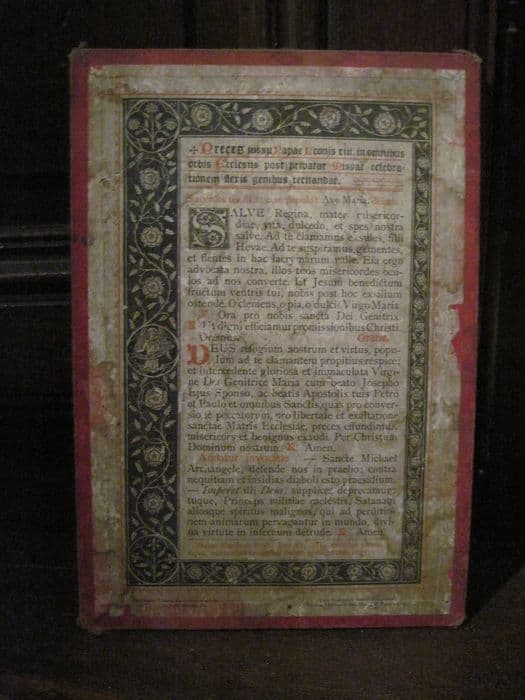 ✠ Preces jussu Papae Leonis XIII. in omnibus
orbis Ecclesiis post privatae Missae celebra-
tionem flexis genibus recitandae.
Ave Maria.
SALVE Regina, mater misericor-
diae, vita, dulcedo, et spes nostra
salve. Ad te clamamus exsules, filii
Hevae. Ad te suspiramus, gementes,
et flentes in hac lacrymarum valle. Eia ergo
advocata nostra, illos tuos misericordes ocu-
los ad nos converte. Et Jesum benedictum
fructum ventris tui, nobis post hoc exsilium
ostende. O clemens, o pia, o dulcis Virgo Maria
℣. Ora pro nobis sancta Dei Genitrix
℟. Ut digni efficiamur promissionibus Christi
Oremus. Oratio.
DEUS refugium nostrum et virtus, popu-
lum ad te clamantem propitius respice;
et intercedente gloriosa et immaculata Virgi-
ne Dei Genitrice Maria cum beato Josepho
Ejus Sponso, ac beatis Apostolis tuis Petro
et Paulo et omnibus Sanctis, quas pro conver-
sione peccatorum, pro libertate et exaltatione
sanctae Matris Ecclesiae, preces effundimus,
misericors et benignus exaudi. Per Christum
Dominum nostrum. ℟. Amen.
Addatur invocatio: — Sancte Michael
Archangele, defende nos in praelio; contra
nequitiam et insidias diaboli esto praesidium.
— Imperet illi Deus, supplices deprecamur:
tuque, Princeps militiae caelestis, Satanam
aliosque spiritus malignos, qui ad perditio-
nem animarum pervagantur in mundo, divi-
na virtute in infernum detrude. ℟. Amen